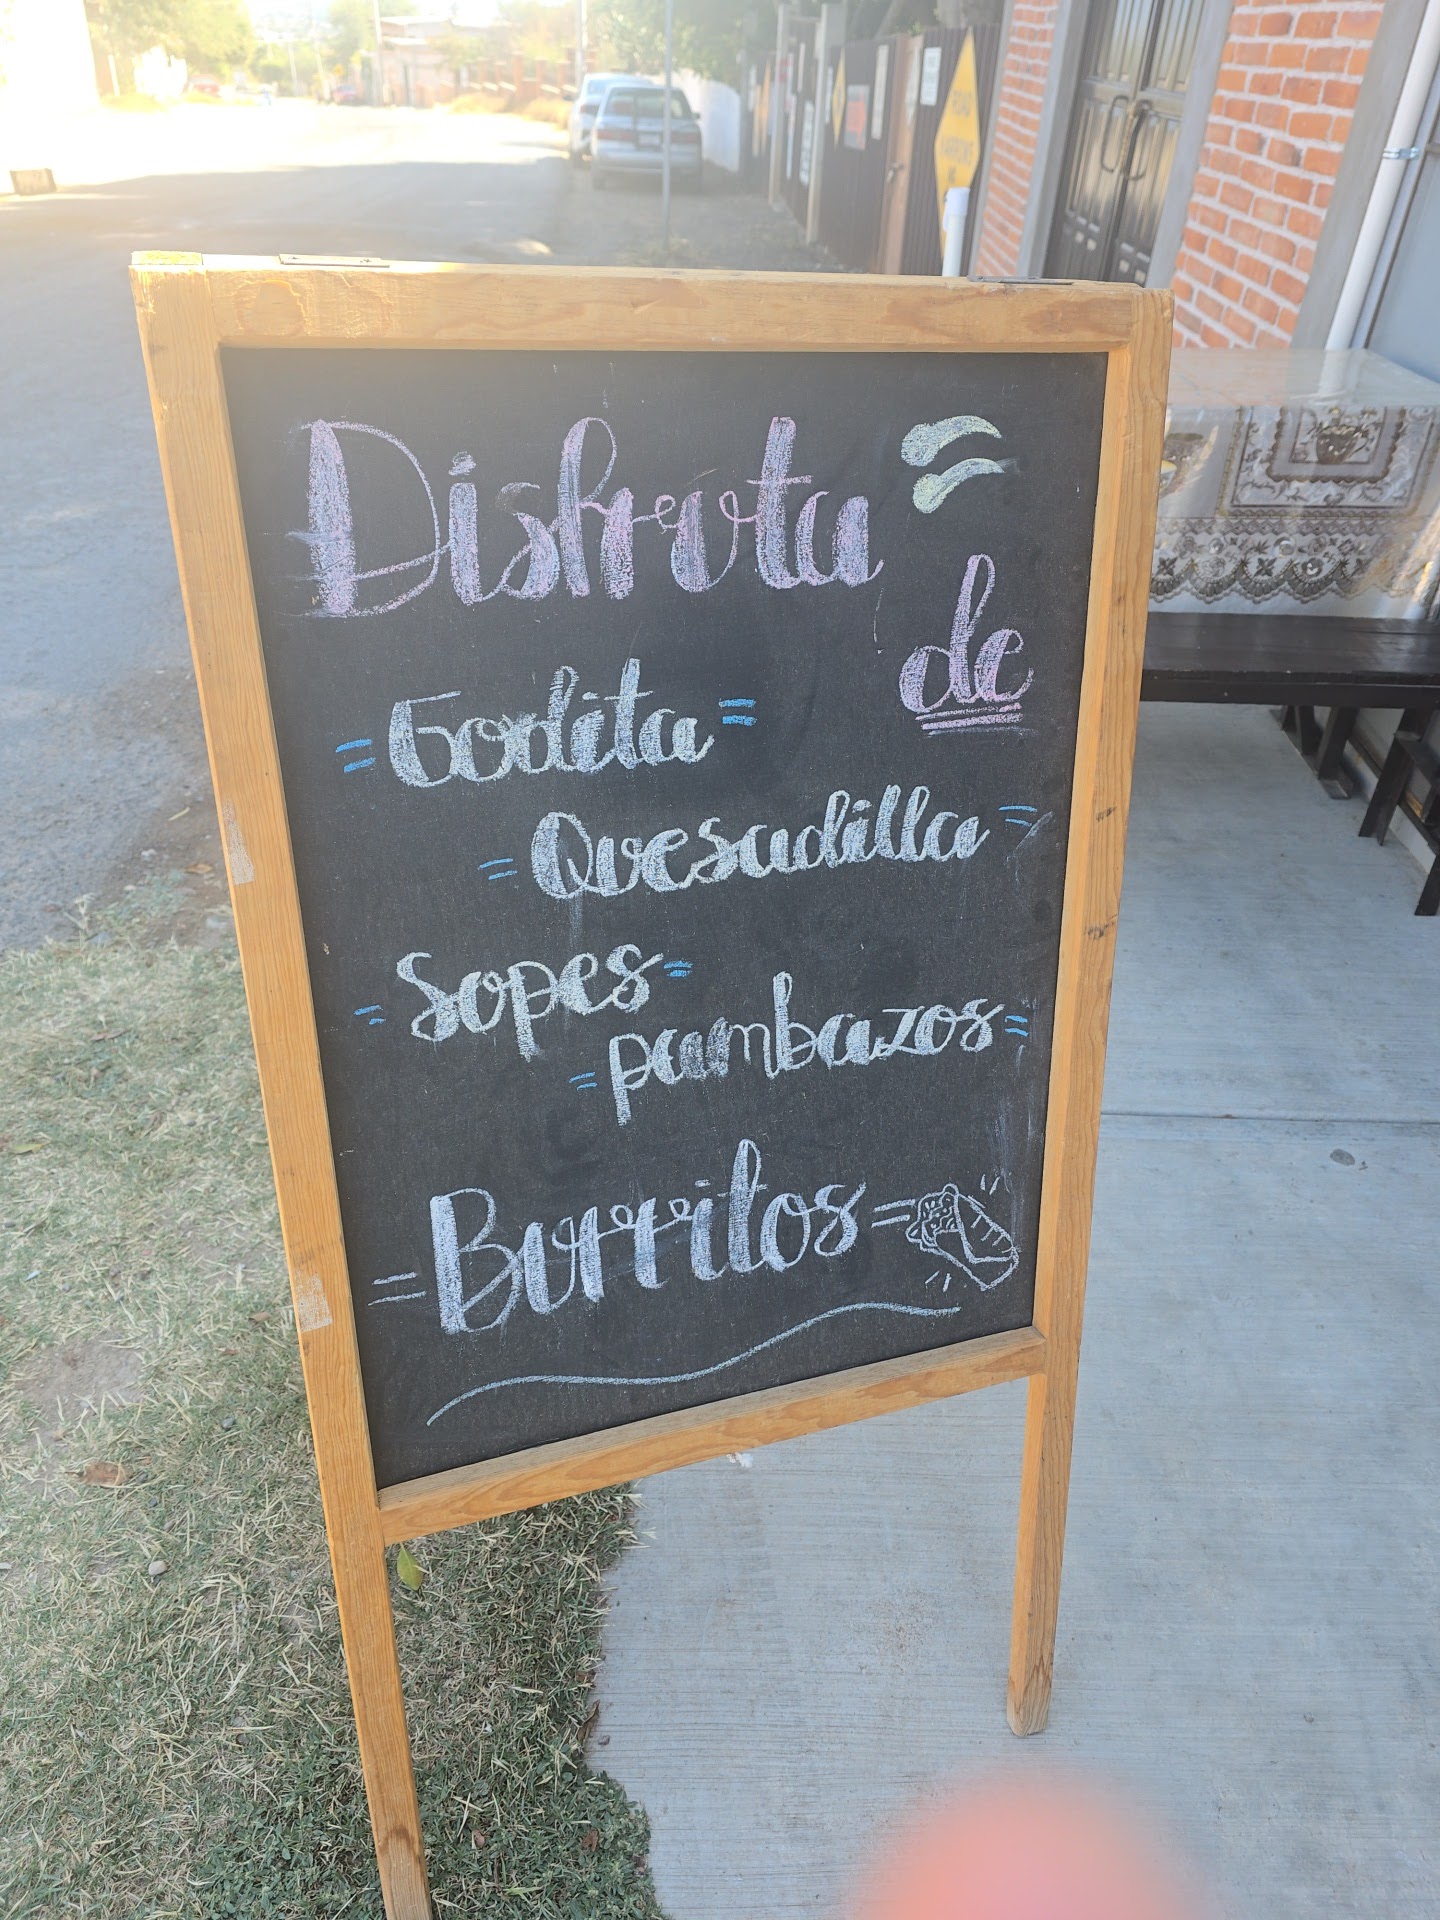 Disfruta
de
Godita
Quesadilla
Sopes
pambazos
Burritos